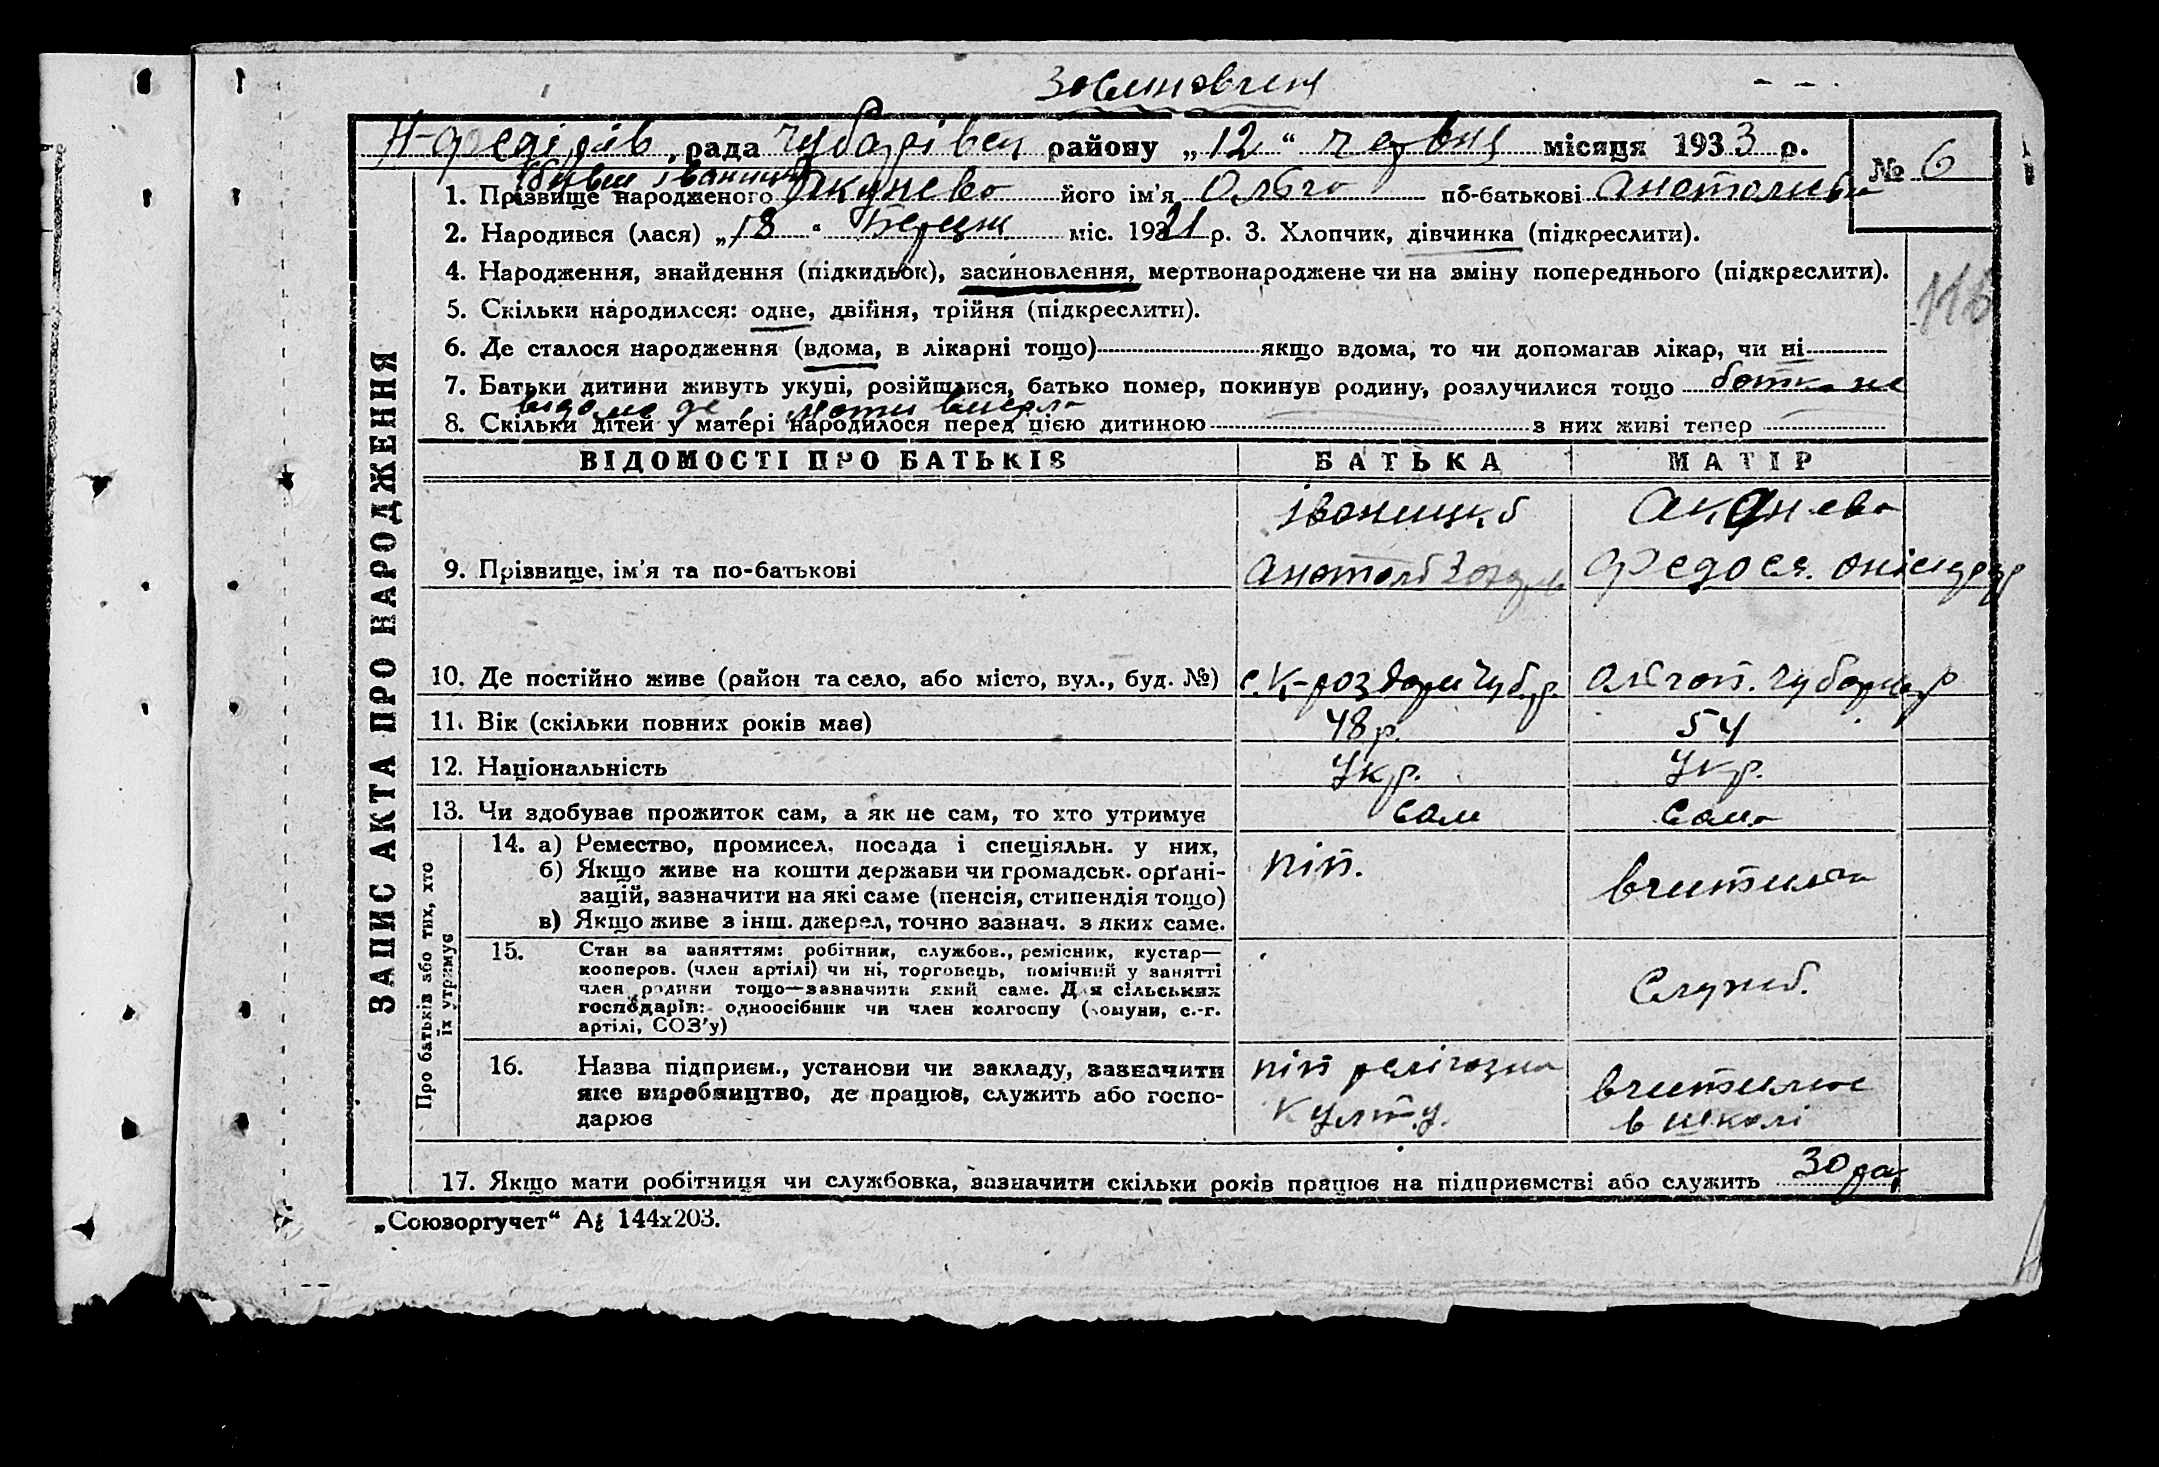 Засиновлення
Н-Федорів, рада Чубарівськ району „12“ червня місяця 1933 р. № 6
бувш Іваницьк
1. Прізвище народженого Акунева його ім'я Ольга по-батькові Анатоліева
2. Народився (лася) „18“ Березня міс. 1921 р. 3. Хлопчик, дівчинка (підкреслити).
4. Народження, знайдення (підкидьок), засиновлення, мертвонароджене чи на зміну попереднього (підкреслити).
116
5. Скільки народилося: одне, двійня, трійня (підкреслити).
6. Де сталося народження (вдома, в лікарні тощо) якщо вдома, то чи допомагав лікар, чи ні
7. Батьки дитини живуть укупі, розійшлися, батько помер, покинув родину, розлучилися тощо батька не
відомо де мати вмерла
8. Скільки дітей у матері народилося перед цією дитиною з них живі тепер
ЗАПИС АКТА ПРО НАРОДЖЕННЯ
ВІДОМОСТІ ПРО БАТЬКІВ БАТЬКА МАТІР
Іваницкий Акунева
9. Прізвище, ім'я та по-батькові Анатолій Федося
10. Де постійно живе (район та село, або місто, вул., буд. №) с. К-роздори Чуб.р. Ольгоп. Чубарів р
11. Вік (скільки повних років має) 48 р. 54
12. Національність Укр. Укр.
13. Чи здобував прожиток сам, а як не сам, то хто утримує сам сама
Про батьків або тих, хто їх утримує
14. а) Ремество, промисел, посада і спеціяльн. у них,
б) Якщо живе на кошти держави чи громадськ. орґані-
зацій, зазначити на які саме (пенсія, стипендія тощо)
в) Якщо живе з інш. джерел, точно зазнач. з яких саме.
піп. вчителька
15. Стан за заняттям: робітник, службов., ремісник, кустар—
кооперов. (член артілі) чи ні, торговець, помічний у занятті
член родини тощо—зазначити який саме. Для сільських
господарів: одноосібник чи член колгоспу (комуни, с.-г.
артілі, СОЗ'у)
Служб.
16. Назва підприєм., установи чи закладу, зазначити
яке виробництво, де працює, служить або госпо-
дарює
піп релігозна
культу.
вчителює
в школі
17. Якщо мати робітниця чи службовка, зазначити скільки років працює на підприємстві або служить 30 рок
„Союзоргучет“ А₆ 144х203.